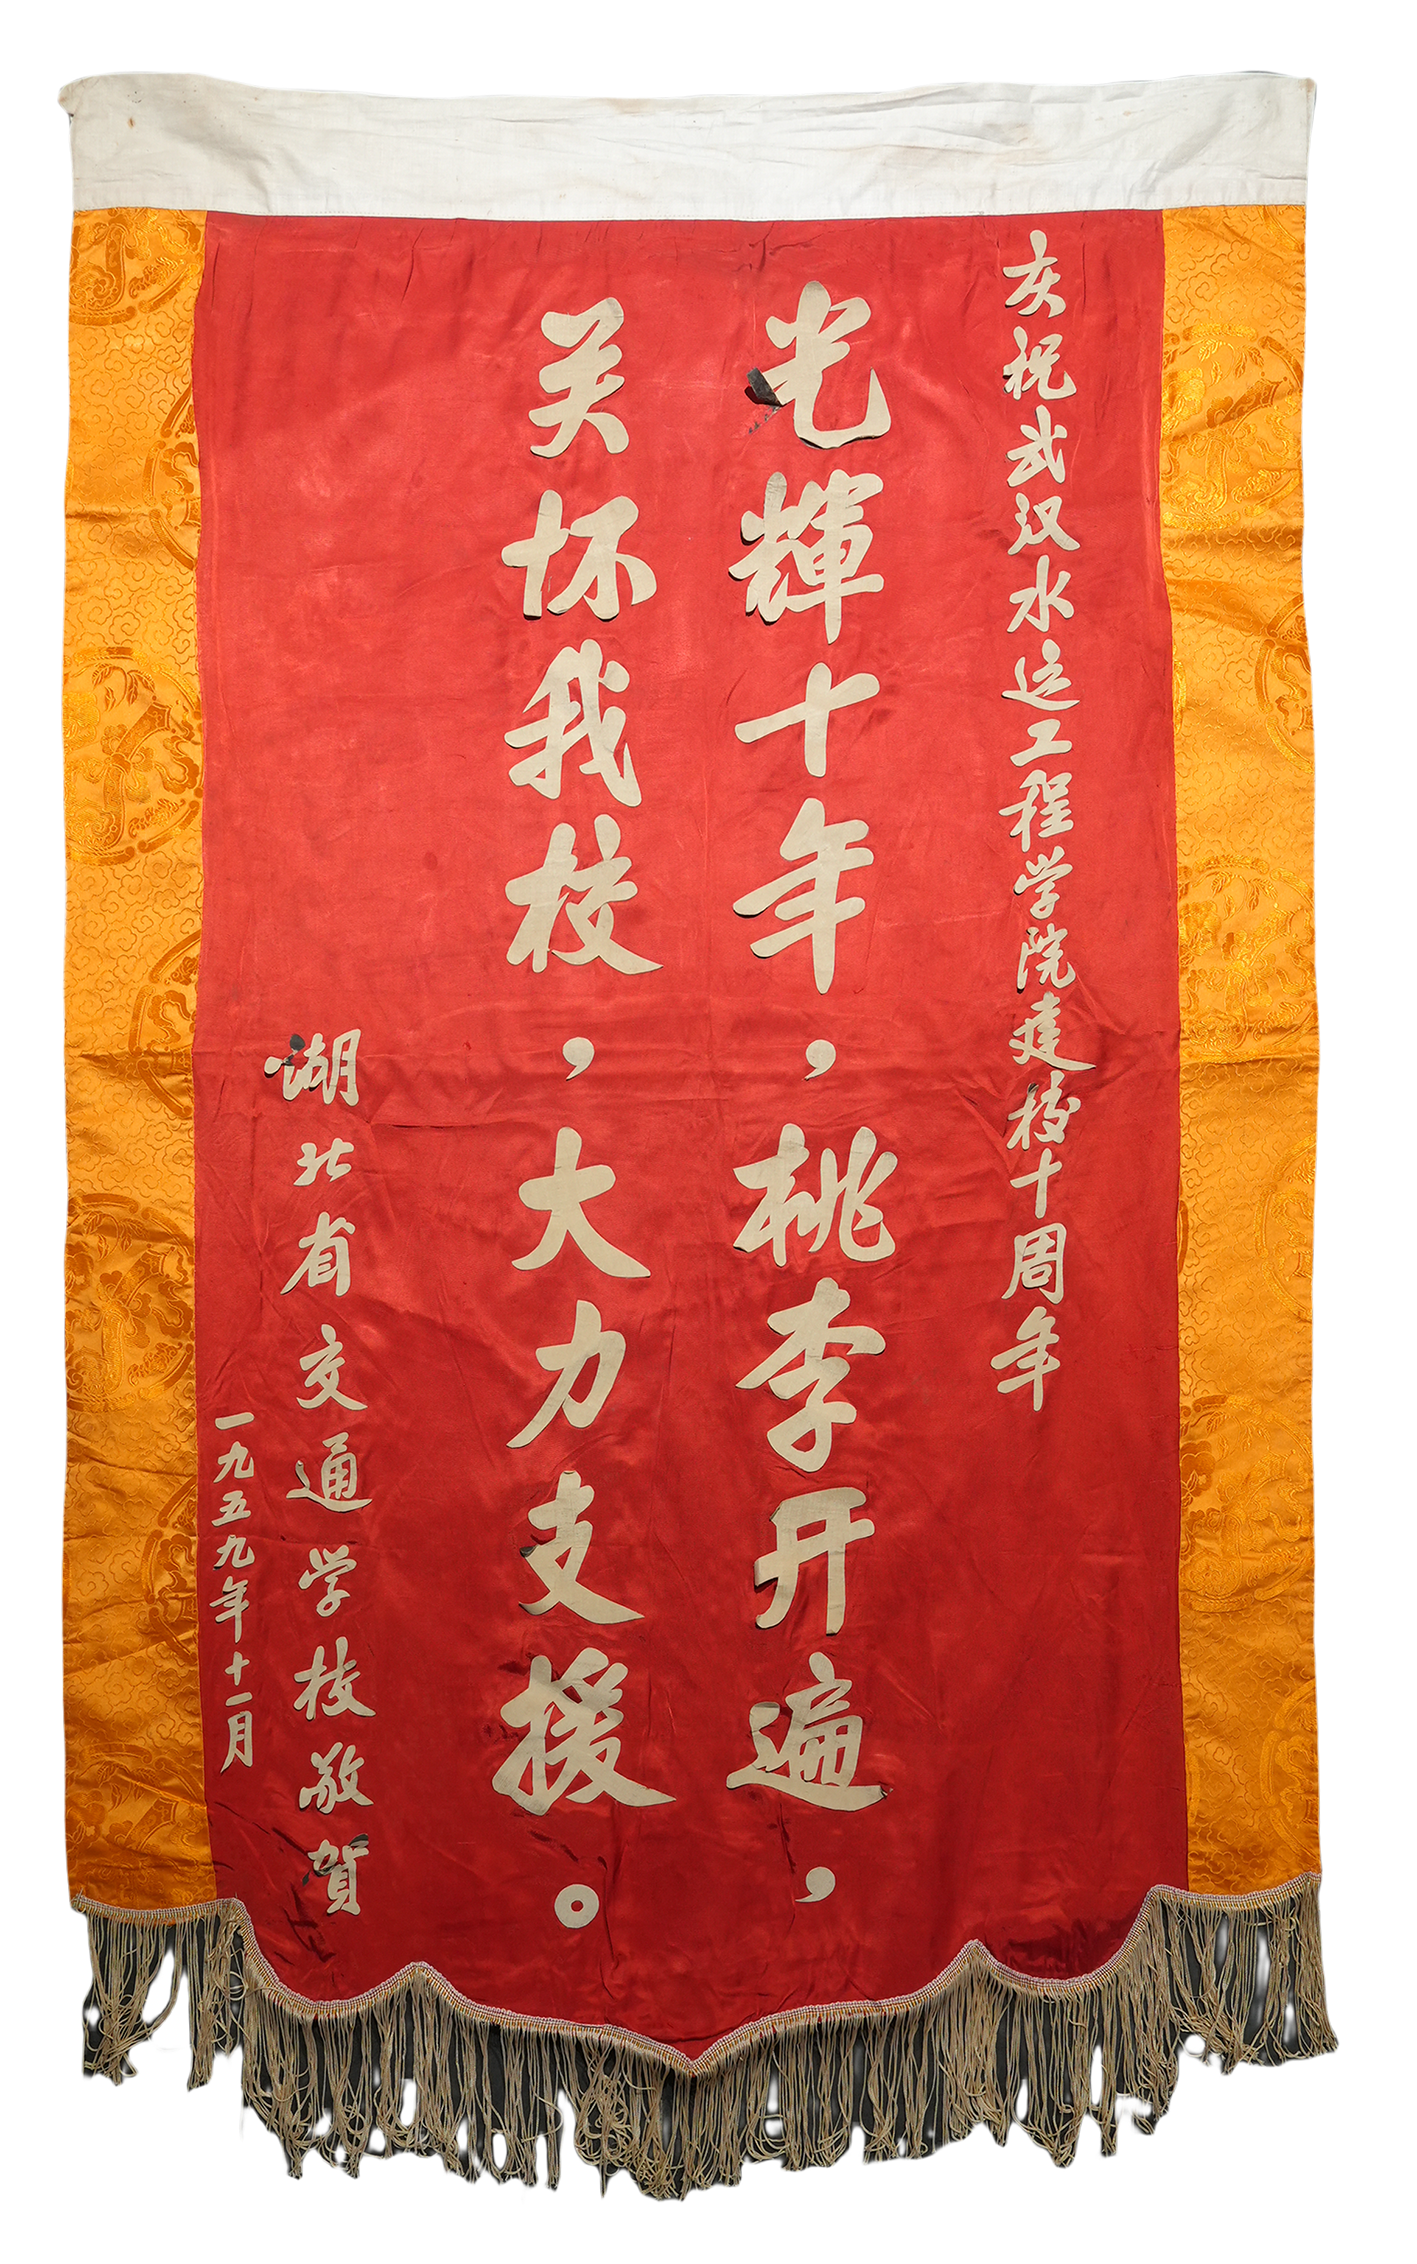 庆祝武汉水运工程学院建校十周年
光辉十年，桃李开遍，
关怀我校，大力支援。
湖北省交通学校敬贺
一九五九年十一月